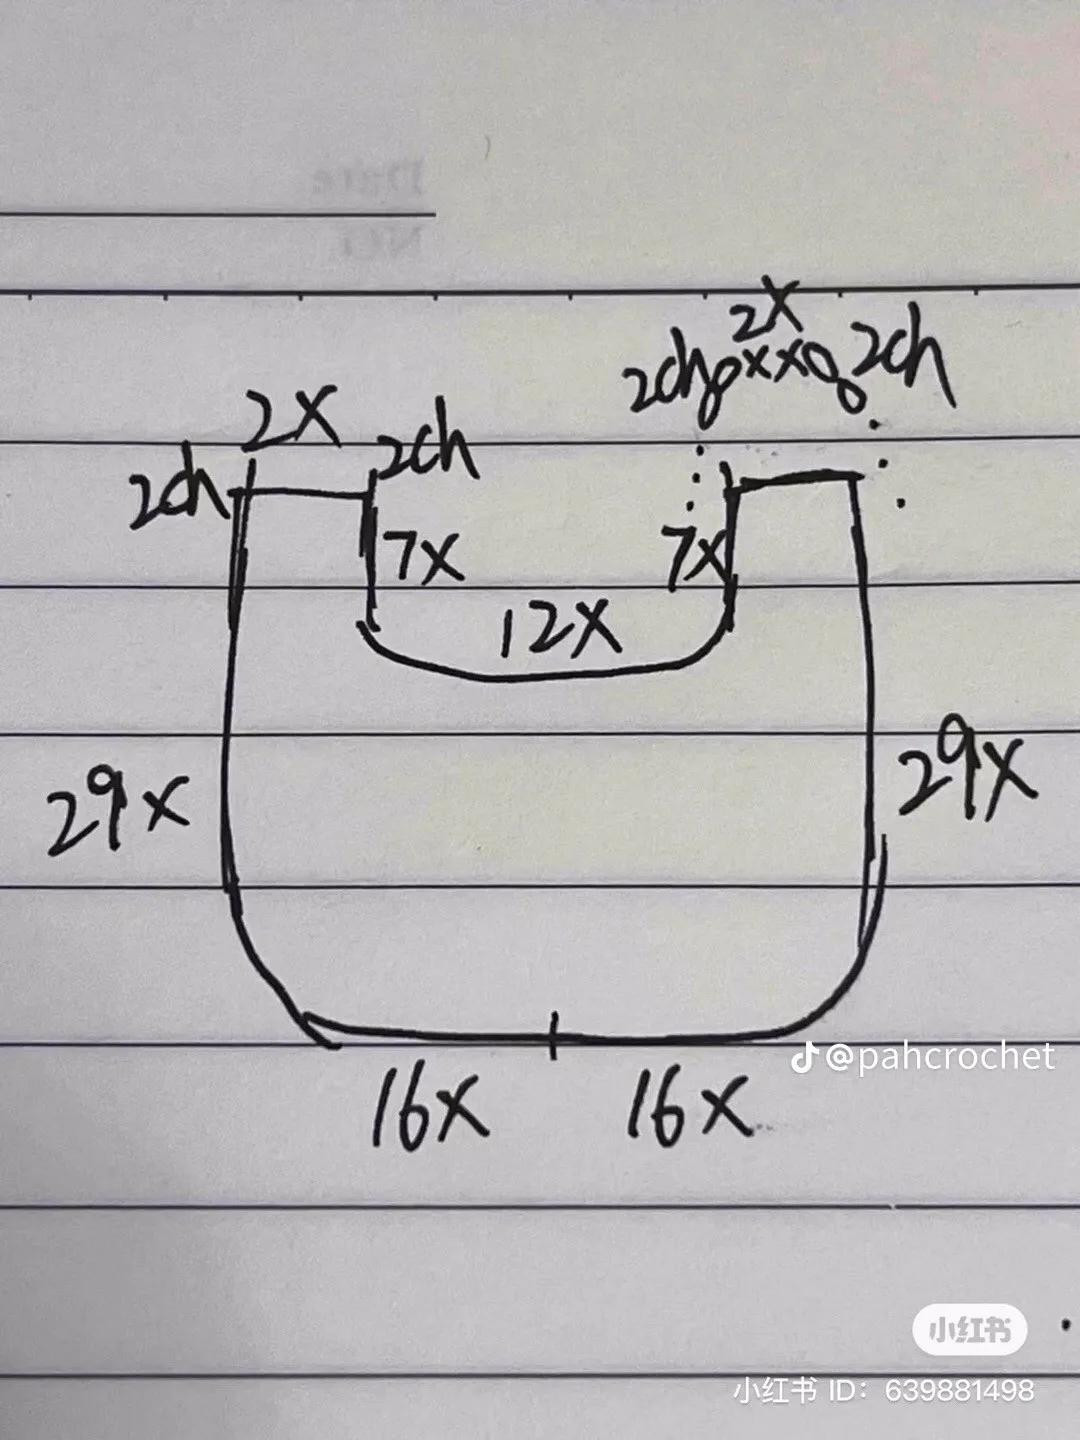 Date
No
2X
2ch xx 2ch
2X
2ch 2ch
7X 7X
12X
29X 29X
@pahcrochet
16X 16X
小红书
小红书 ID：639881498